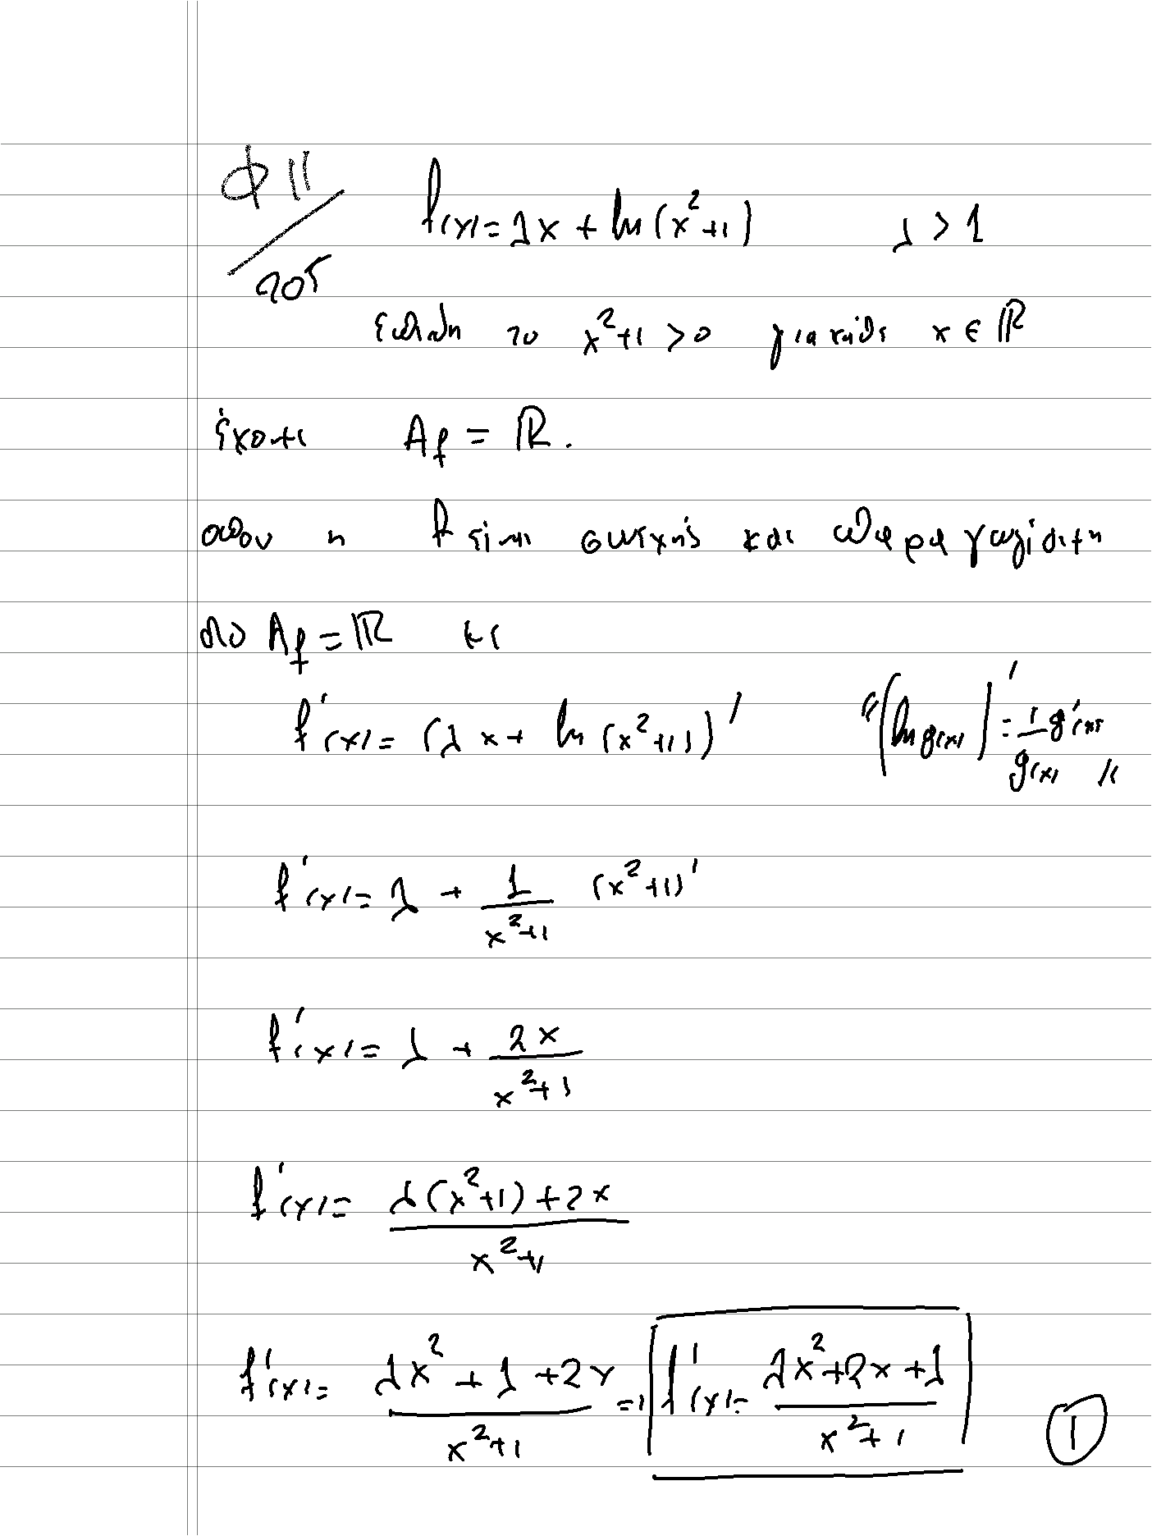 Φ 11 / 205 f(x) = λx + ln(x²+1) λ > 1
Επειδή το x²+1 > 0 για κάθε x ∈ ℝ
έχουμε A_f = ℝ.
οπου η f είναι συνεχής και παραγωγίσιμη
στο A_f = ℝ με
f'(x) = (λx + ln(x²+1))' "(ln g(x))' = 1/g(x) g'(x)"
f'(x) = λ + 1/(x²+1) (x²+1)'
f'(x) = λ + 2x/(x²+1)
f'(x) = (λ(x²+1)+2x)/(x²+1)
f'(x) = (λx² + λ + 2x)/(x²+1) ⇒ f'(x) = (λx²+2x+λ)/(x²+1) ①